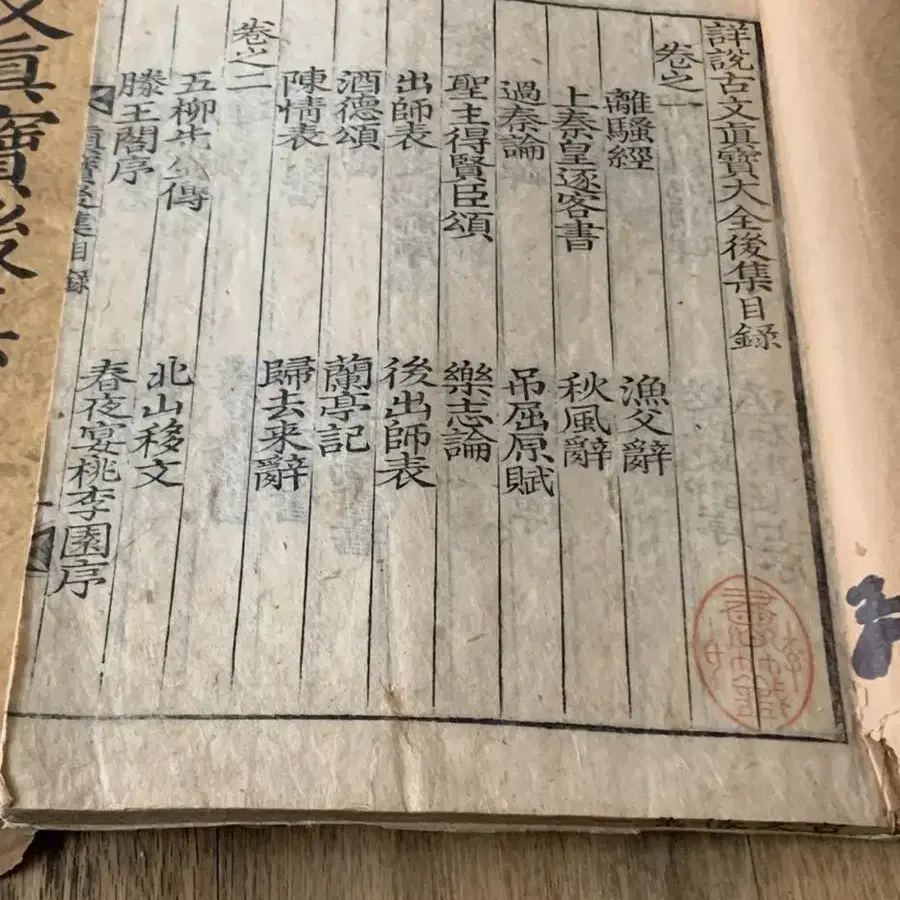 詳說古文眞寶大全後集目錄
卷之一
離騷經 漁父辭
上秦皇逐客書 秋風辭
過秦論 吊屈原賦
聖主得賢臣頌 樂志論
出師表 後出師表
酒德頌 蘭亭記
陳情表 歸去来辭
卷之二
五柳先生傳 北山移文
滕王閣序 春夜宴桃李園序
眞寶後集目錄 一
眞寶後